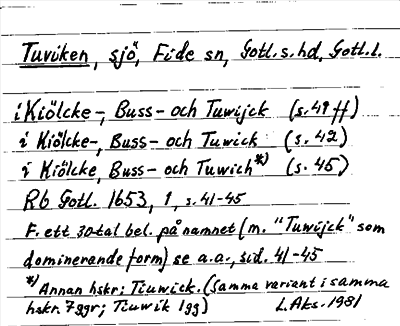 Tuviken, sjö, Fide sn, Gotl. s. hd, Gotl. l.
i Kiölcke-, Buss- och Tuwijck (s. 41 ff)
i Kiölcke-, Buss- och Tuwick (s. 42)
i Kiölcke, Buss- och Tuwich*) (s. 45)
Rb Gotl. 1653, 1, s. 41-45
F. ett 30-tal bel. på namnet (m. "Tuwijck" som
dominerande form) se a.a., sid. 41-45
*) Annan hskr: Tiuwick. (Samma variant i samma
hskr. 7 ggr; Tiuwik 1 gg) L. Aks. 1981